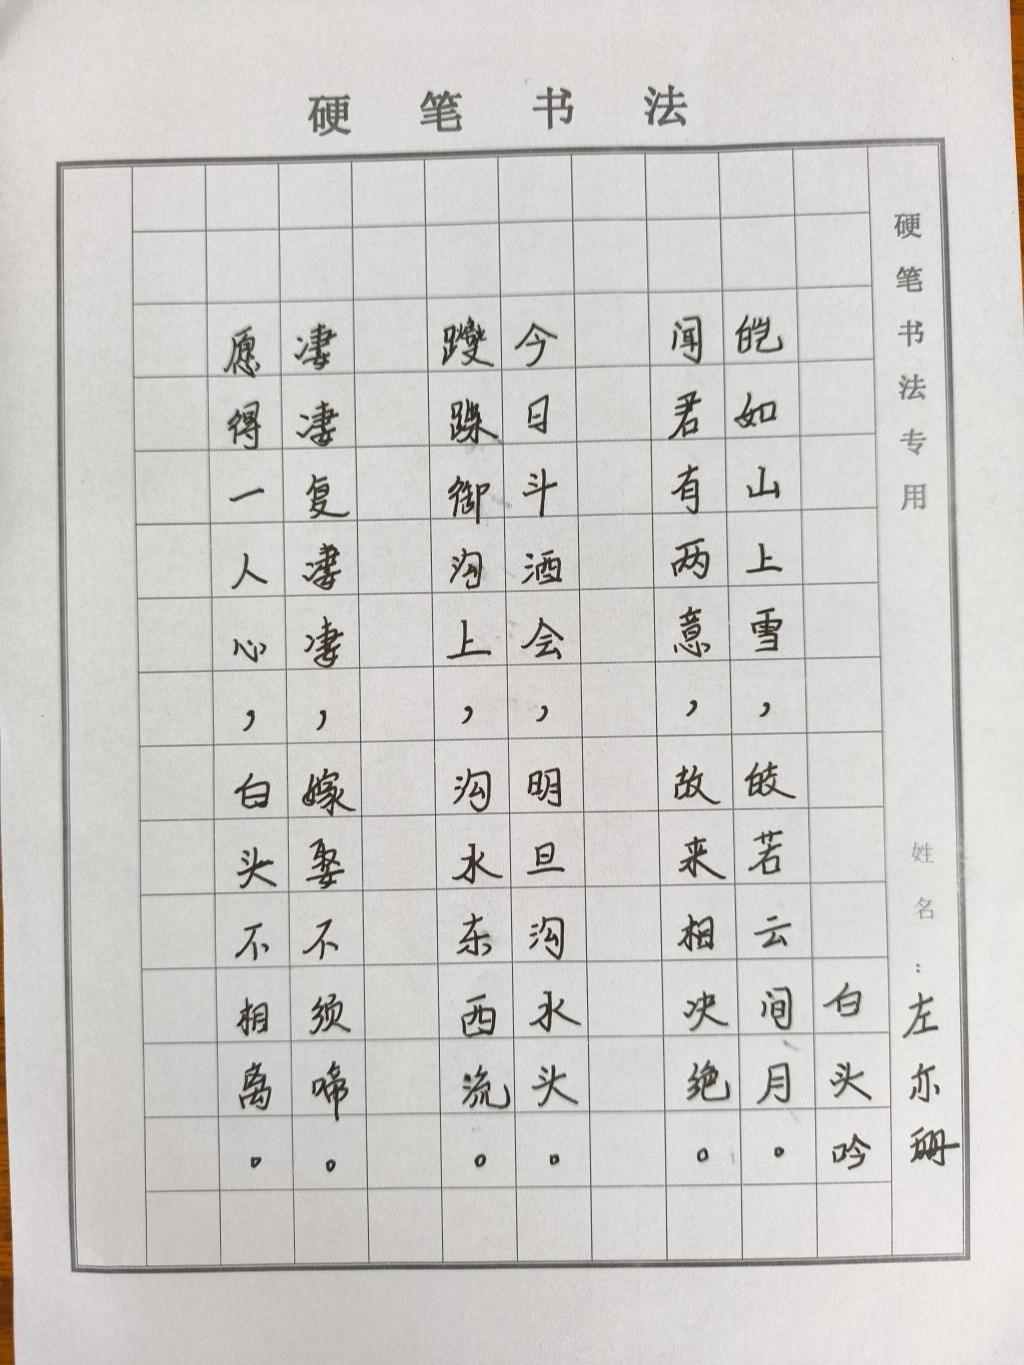 硬笔书法
硬笔书法专用
姓名：左尔珊
白头吟
皑如山上雪，皎若云间月。
闻君有两意，故来相决绝。
今日斗酒会，明旦沟水头。
躞蹀御沟上，沟水东西流。
凄凄复凄凄，嫁娶不须啼。
愿得一人心，白头不相离。